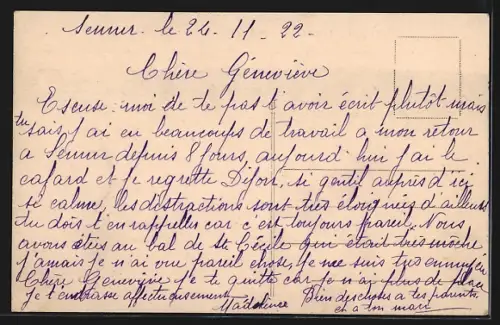 Semur le 24-11-22-
Chère Géneviève
Escuse-moi de te pas t'avoir écrit plutôt mais
tu sais j'ai eu beaucoups de travail a mon retour
a Semur depuis 8 jours, aujourd'hui j'ai le
cafard et je regrette Dijon, si gentil auprès d'ici
si calme, les distractions sont très éloignées d'ailleurs
tu dois t'en rappeller car c'est toujours pareil. Nous
avons étées au bal de Ste Cécile qui était très moche
j'amais je n'ai vue pareil chose, je me suis très ennuyée
Chère Geneviève je te quitte car je n'ai plus de place
je t'embrasse affectueusement Madeleine
Bien des choses a tes parents
et a ton mari